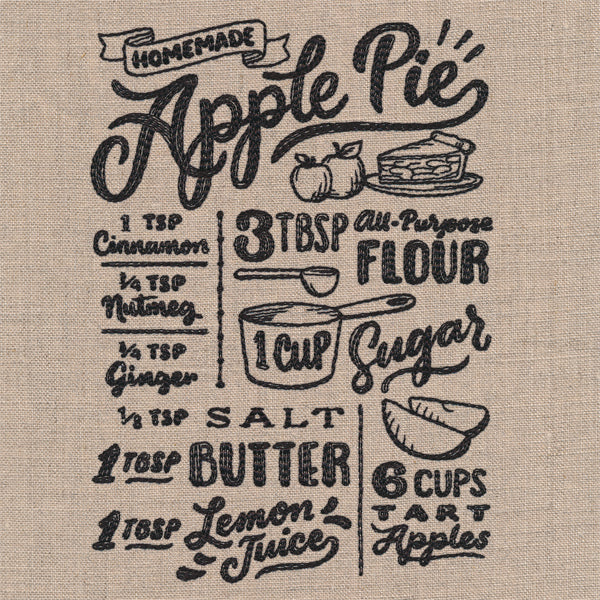 HOMEMADE
Apple Pie
1 TSP
Cinnamon
1/4 TSP
Nutmeg
1/4 TSP
Ginger
3 TBSP All-Purpose
FLOUR
1 CUP Sugar
1/8 TSP SALT
1 TBSP BUTTER
1 TBSP Lemon
Juice
6 CUPS
TART
Apples